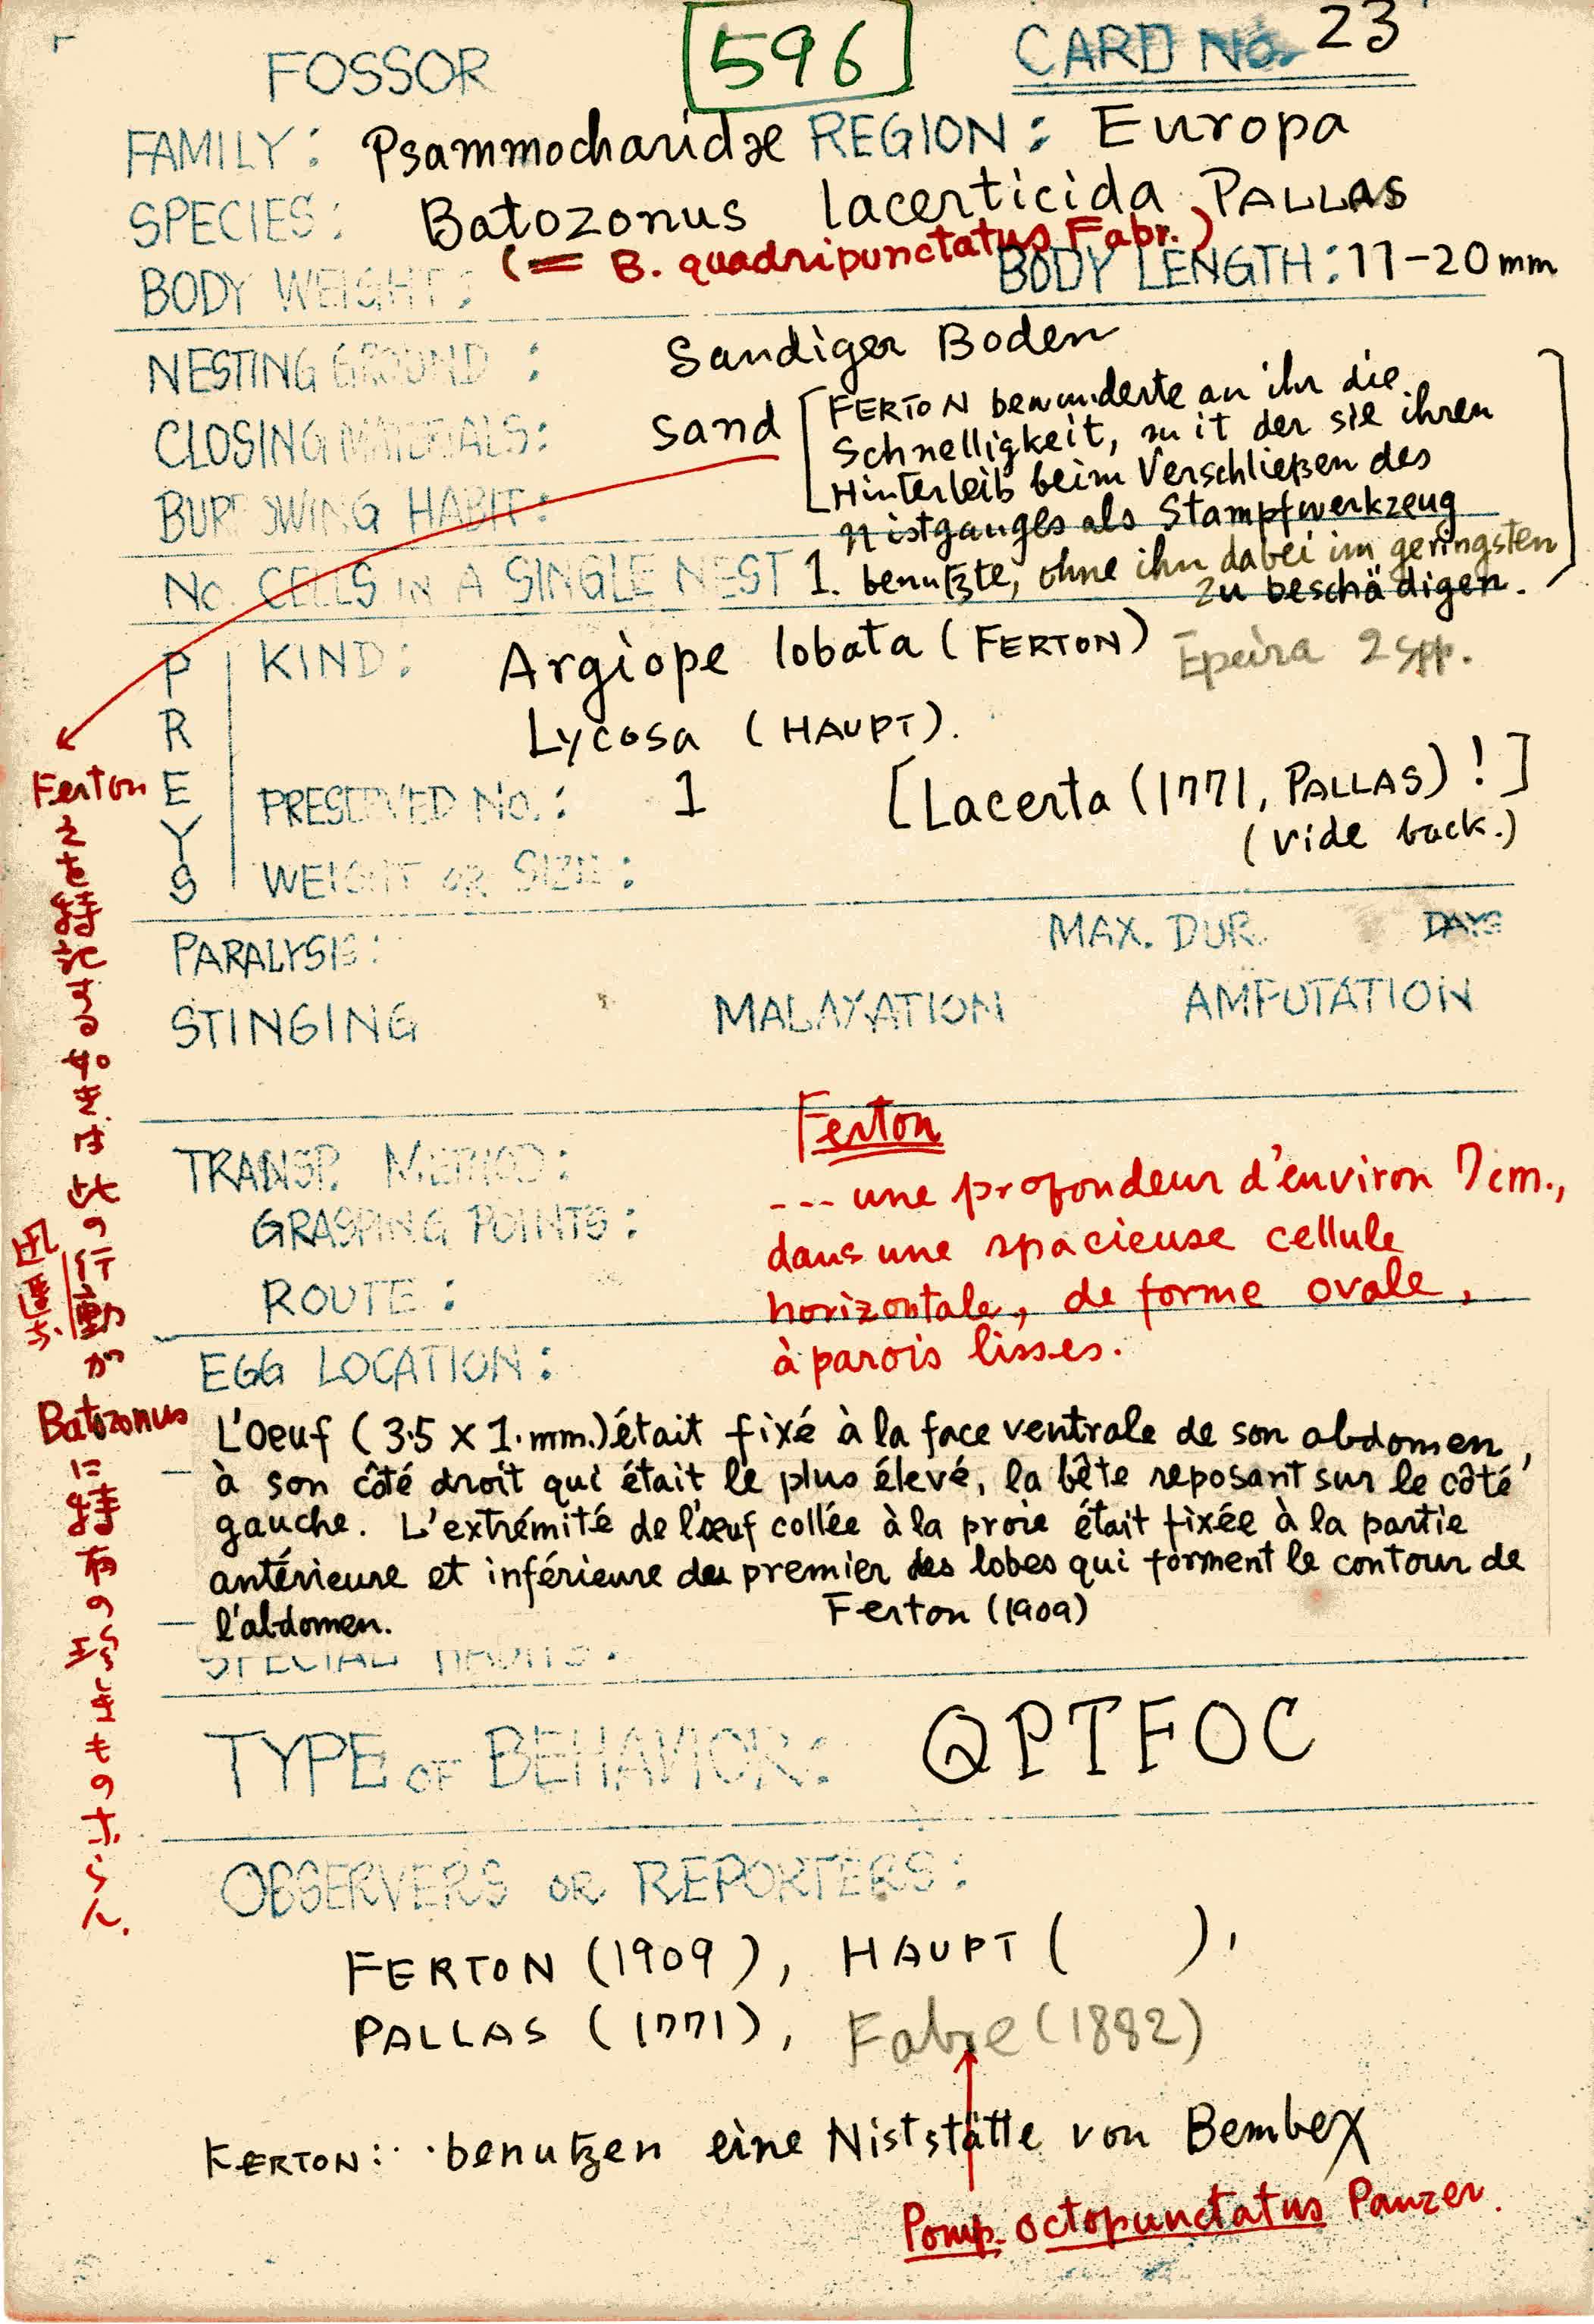 FOSSOR 596 CARD No. 23
FAMILY: Psammocharidæ REGION: Europa
SPECIES: Batozonus lacerticida PALLAS
(= B. quadripunctatus Fabr.)
BODY WEIGHT: BODY LENGTH: 11-20 mm
NESTING GROUND: Sandiger Boden
CLOSING MATERIALS: Sand
BURROWING HABIT:
[FERTON bewunderte an ihr die
Schnelligkeit, mit der sie ihren
Hinterleib beim Verschließen des
Nistganges als Stampfwerkzeug
benutzte, ohne ihn dabei im geringsten
zu beschädigen.]
No. CELLS IN A SINGLE NEST 1.
PREYS
KIND: Argiope lobata (FERTON) Epeira 2 spp.
Lycosa (HAUPT).
PRESERVED No.: 1 [Lacerta (1771, PALLAS)!]
(vide back.)
WEIGHT OR SIZE:
PARALYSIS: MAX. DUR. DAYS
STINGING MALAXATION AMPUTATION
TRANSP. METHOD:
GRASPING POINTS:
ROUTE:
Ferton
--- une profondeur d'environ 7 cm.,
dans une spacieuse cellule
horizontale, de forme ovale,
à parois lisses.
EGG LOCATION:
L'oeuf (3.5 X 1. mm.) était fixé à la face ventrale de son abdomen,
à son côté droit qui était le plus élevé, la bête reposant sur le côté
gauche. L'extrémité de l'œuf collée à la proie était fixée à la partie
antérieure et inférieure du premier des lobes qui forment le contour de
l'abdomen.
Ferton (1909)
SPECIAL HABITS:
TYPE OF BEHAVIOR: QPTFOC
OBSERVERS OR REPORTERS:
FERTON (1909), HAUPT ( ),
PALLAS (1771), Fabre (1882)
FERTON: benutzen eine Niststätte von Bembex
Pomp. octopunctatus Panzer.
Ferton
Batozonus
に特有のものならん.